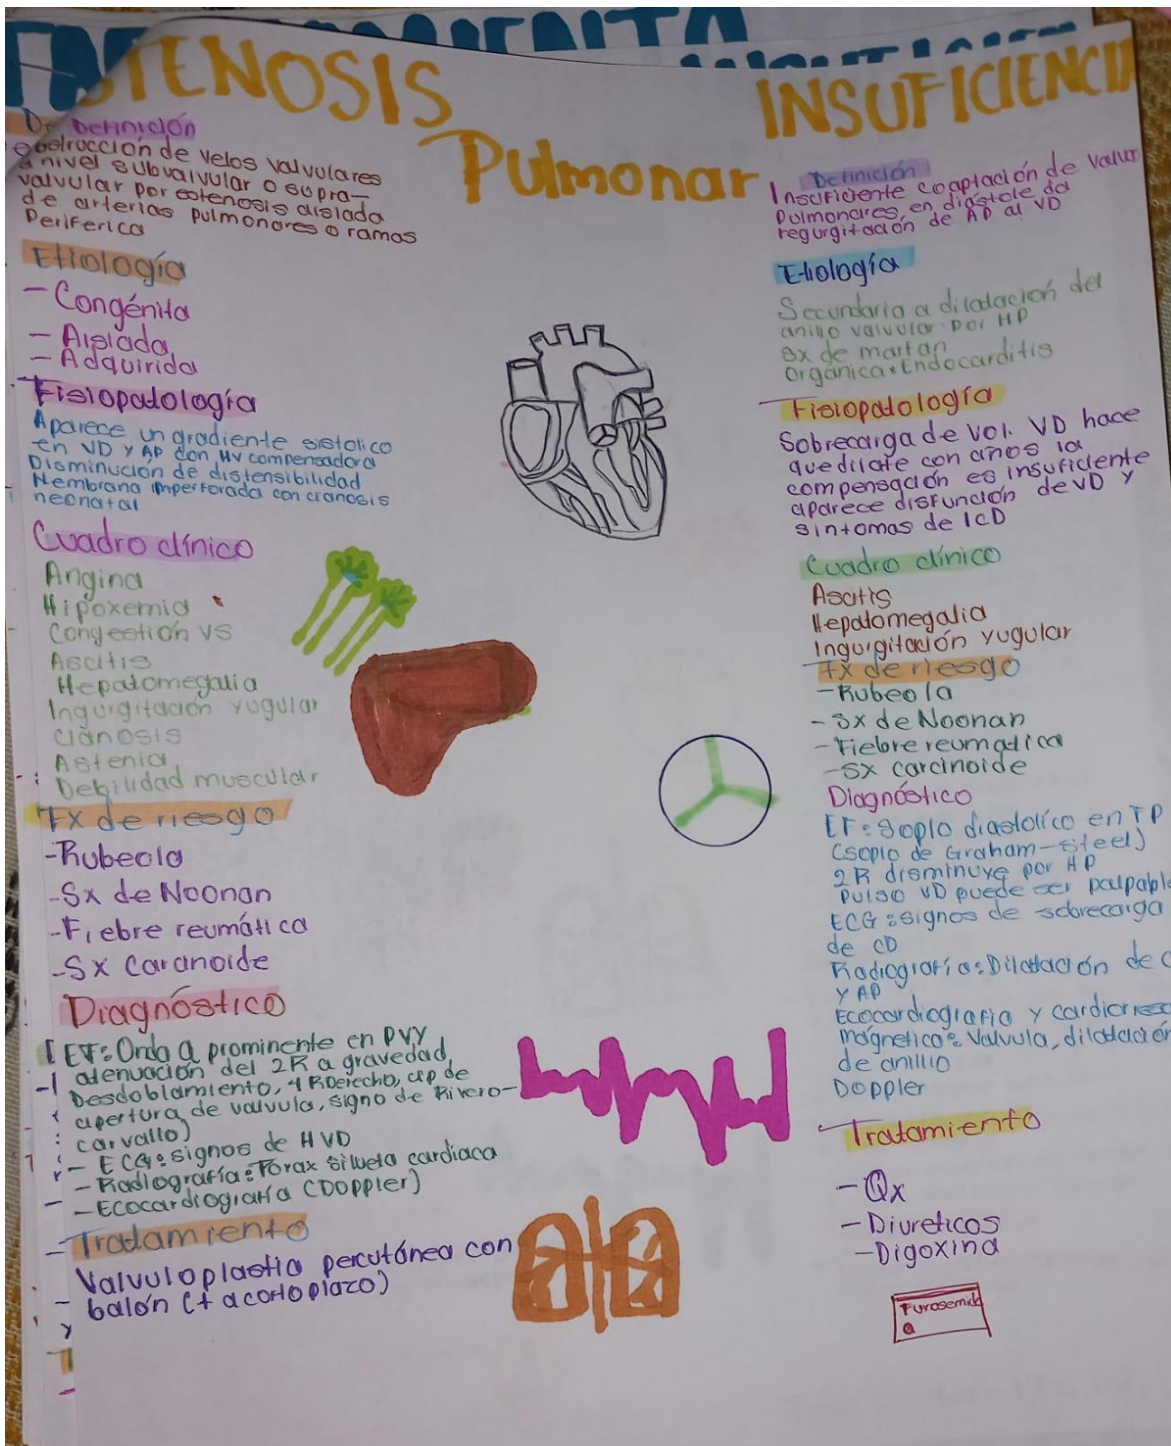 TENOSIS
Pulmonar
INSUFICIENCI
Definición
Obstrucción de velos valvulares
a nivel subvalvular o supra-
valvular por estenosis aislada
de arterias pulmonores o ramas
Periferica
Etiología
- Congénita
- Aislada
- Adquirida
Fisiopatología
Aparece un gradiente sistolico
en VD y AP con HV compensadora
Disminución de distensibilidad
Membrana imperforada con cianosis
neonatal
Cuadro clínico
Angina
Hipoxemia
Congestión VS
Ascitis
Hepatomegalia
Ingurgitación yugular
cianosis
Astenia
Debilidad muscular
Fx de riesgo
-Rubeola
-Sx de Noonan
-Fiebre reumática
-Sx Carcinoide
Diagnóstico
EF: Onda a prominente en PVY
atenuación del 2R a gravedad,
Desdoblamiento, 4 RDerecho, clip de
apertura de valvula, signo de Rivero-
carvallo)
- ECG: signos de HVD
- Radiografía: Torax silueta cardiaca
- Ecocardiografía (Doppler)
Tratamiento
Valvuloplastia percutánea con
balón (+ a corto plazo)
Definición
Insuficiente coaptación de
Pulmonares, en diástole da
regurgitación de AP al VD
Etiología
Secundaria a dilatación del
anillo valvular por HP
Sx de marfan
Organica: Endocarditis
Fisiopatología
Sobrecarga de Vol. VD hace
que dilate con años la
compensación es insuficiente
aparece disfunción de VD y
sintomas de ICD
Cuadro clínico
Ascitis
Hepatomegalia
Ingurgitación yugular
Fx de riesgo
-Rubeola
-Sx de Noonan
-Fiebre reumatica
-Sx carcinoide
Diagnóstico
EF: Soplo diastolico en TP
(soplo de Graham-Steel)
2R disminuye por HP
Pulso VD puede ser palpable
ECG: signos de sobrecarga
de CD
Radiografía: Dilatación de
y AP
Ecocardiografia y
magnetica: Valvula, dilatación
de anillo
Doppler
Tratamiento
-Qx
-Diureticos
-Digoxina
Furosemid
a